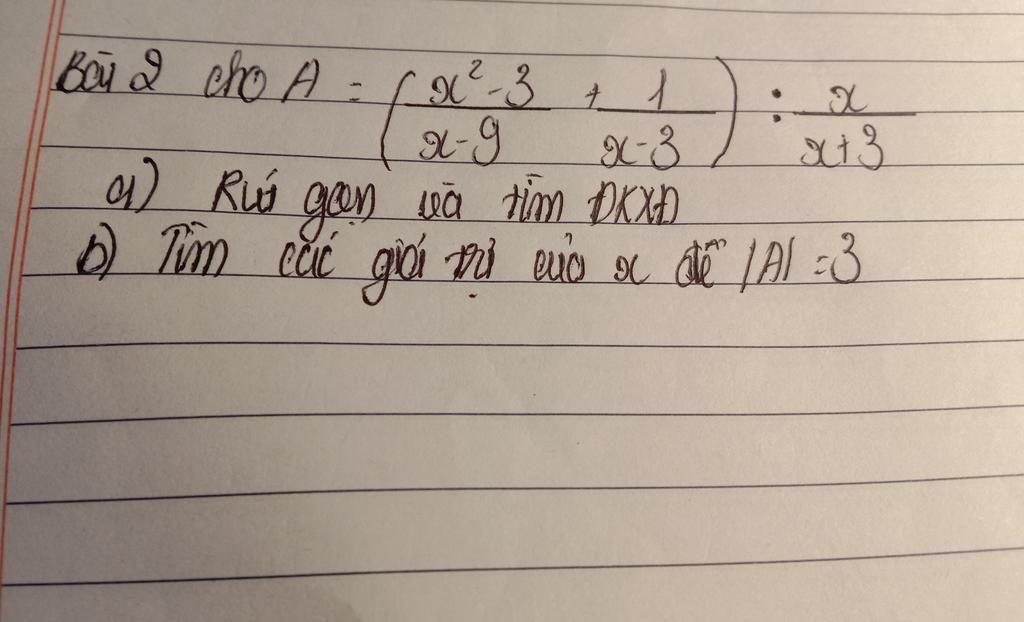 Bài 2 cho A = ( \frac{x^2-3}{x-9} + \frac{1}{x-3} ) : \frac{x}{x+3}
a) Rút gọn và tìm ĐKXĐ
b) Tìm các giới trị của x để |A| = 3